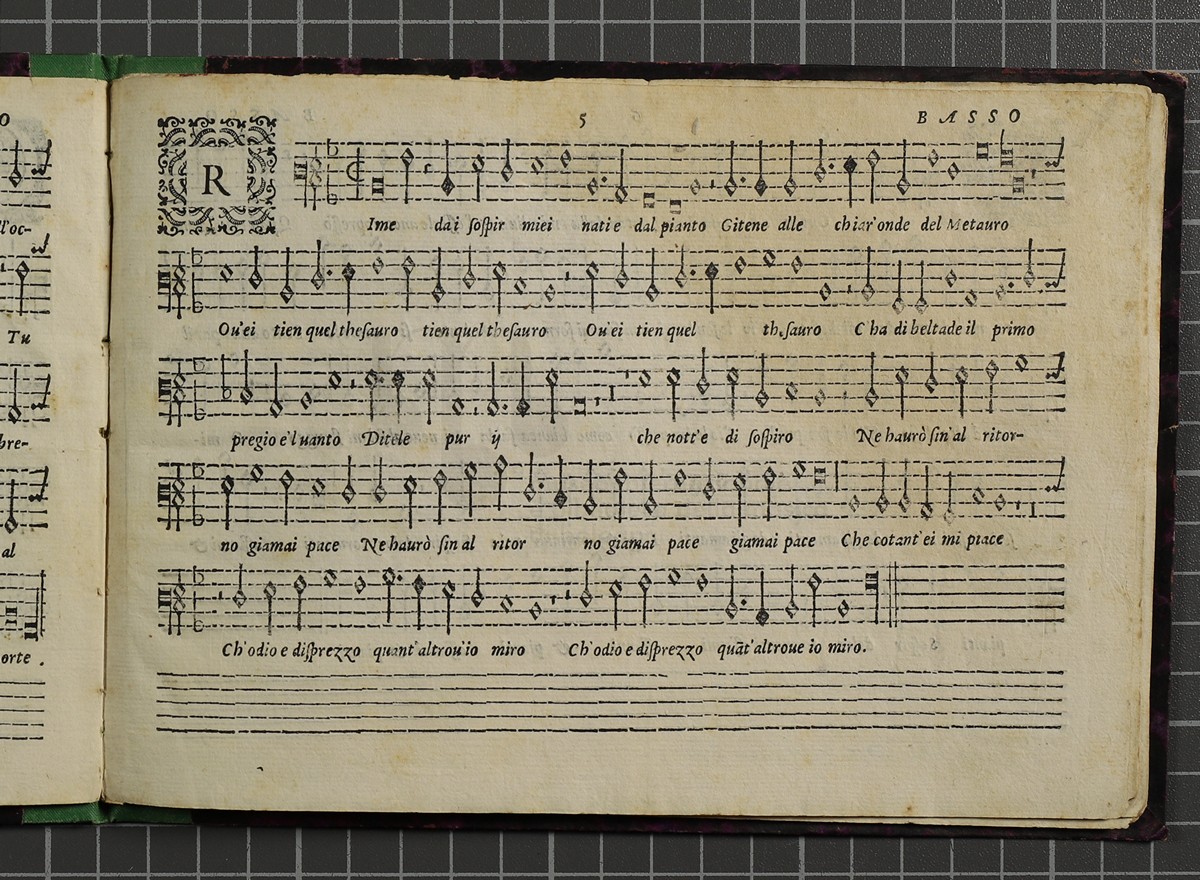 5 BASSO
R Ime dai ſoſpir miei nati e dal pianto Gitene alle chiar'onde del Metauro
Ou'ei tien quel theſauro tien quel theſauro Ou'ei tien quel th,ſauro C ha di beltade il primo
pregio e'l uanto Ditele pur ij che nott'e di ſoſpiro Ne haurò ſin'al ritor-
no giamai pace Ne haurò ſin al ritor no giamai pace giamai pace Che cotant'ei mi piace
Ch'odio e diſprezzo quant'altrou'io miro Ch'odio e diſprezzo quãt'altroue io miro.
O
l'oc-
Tu
bre-
al
orte .